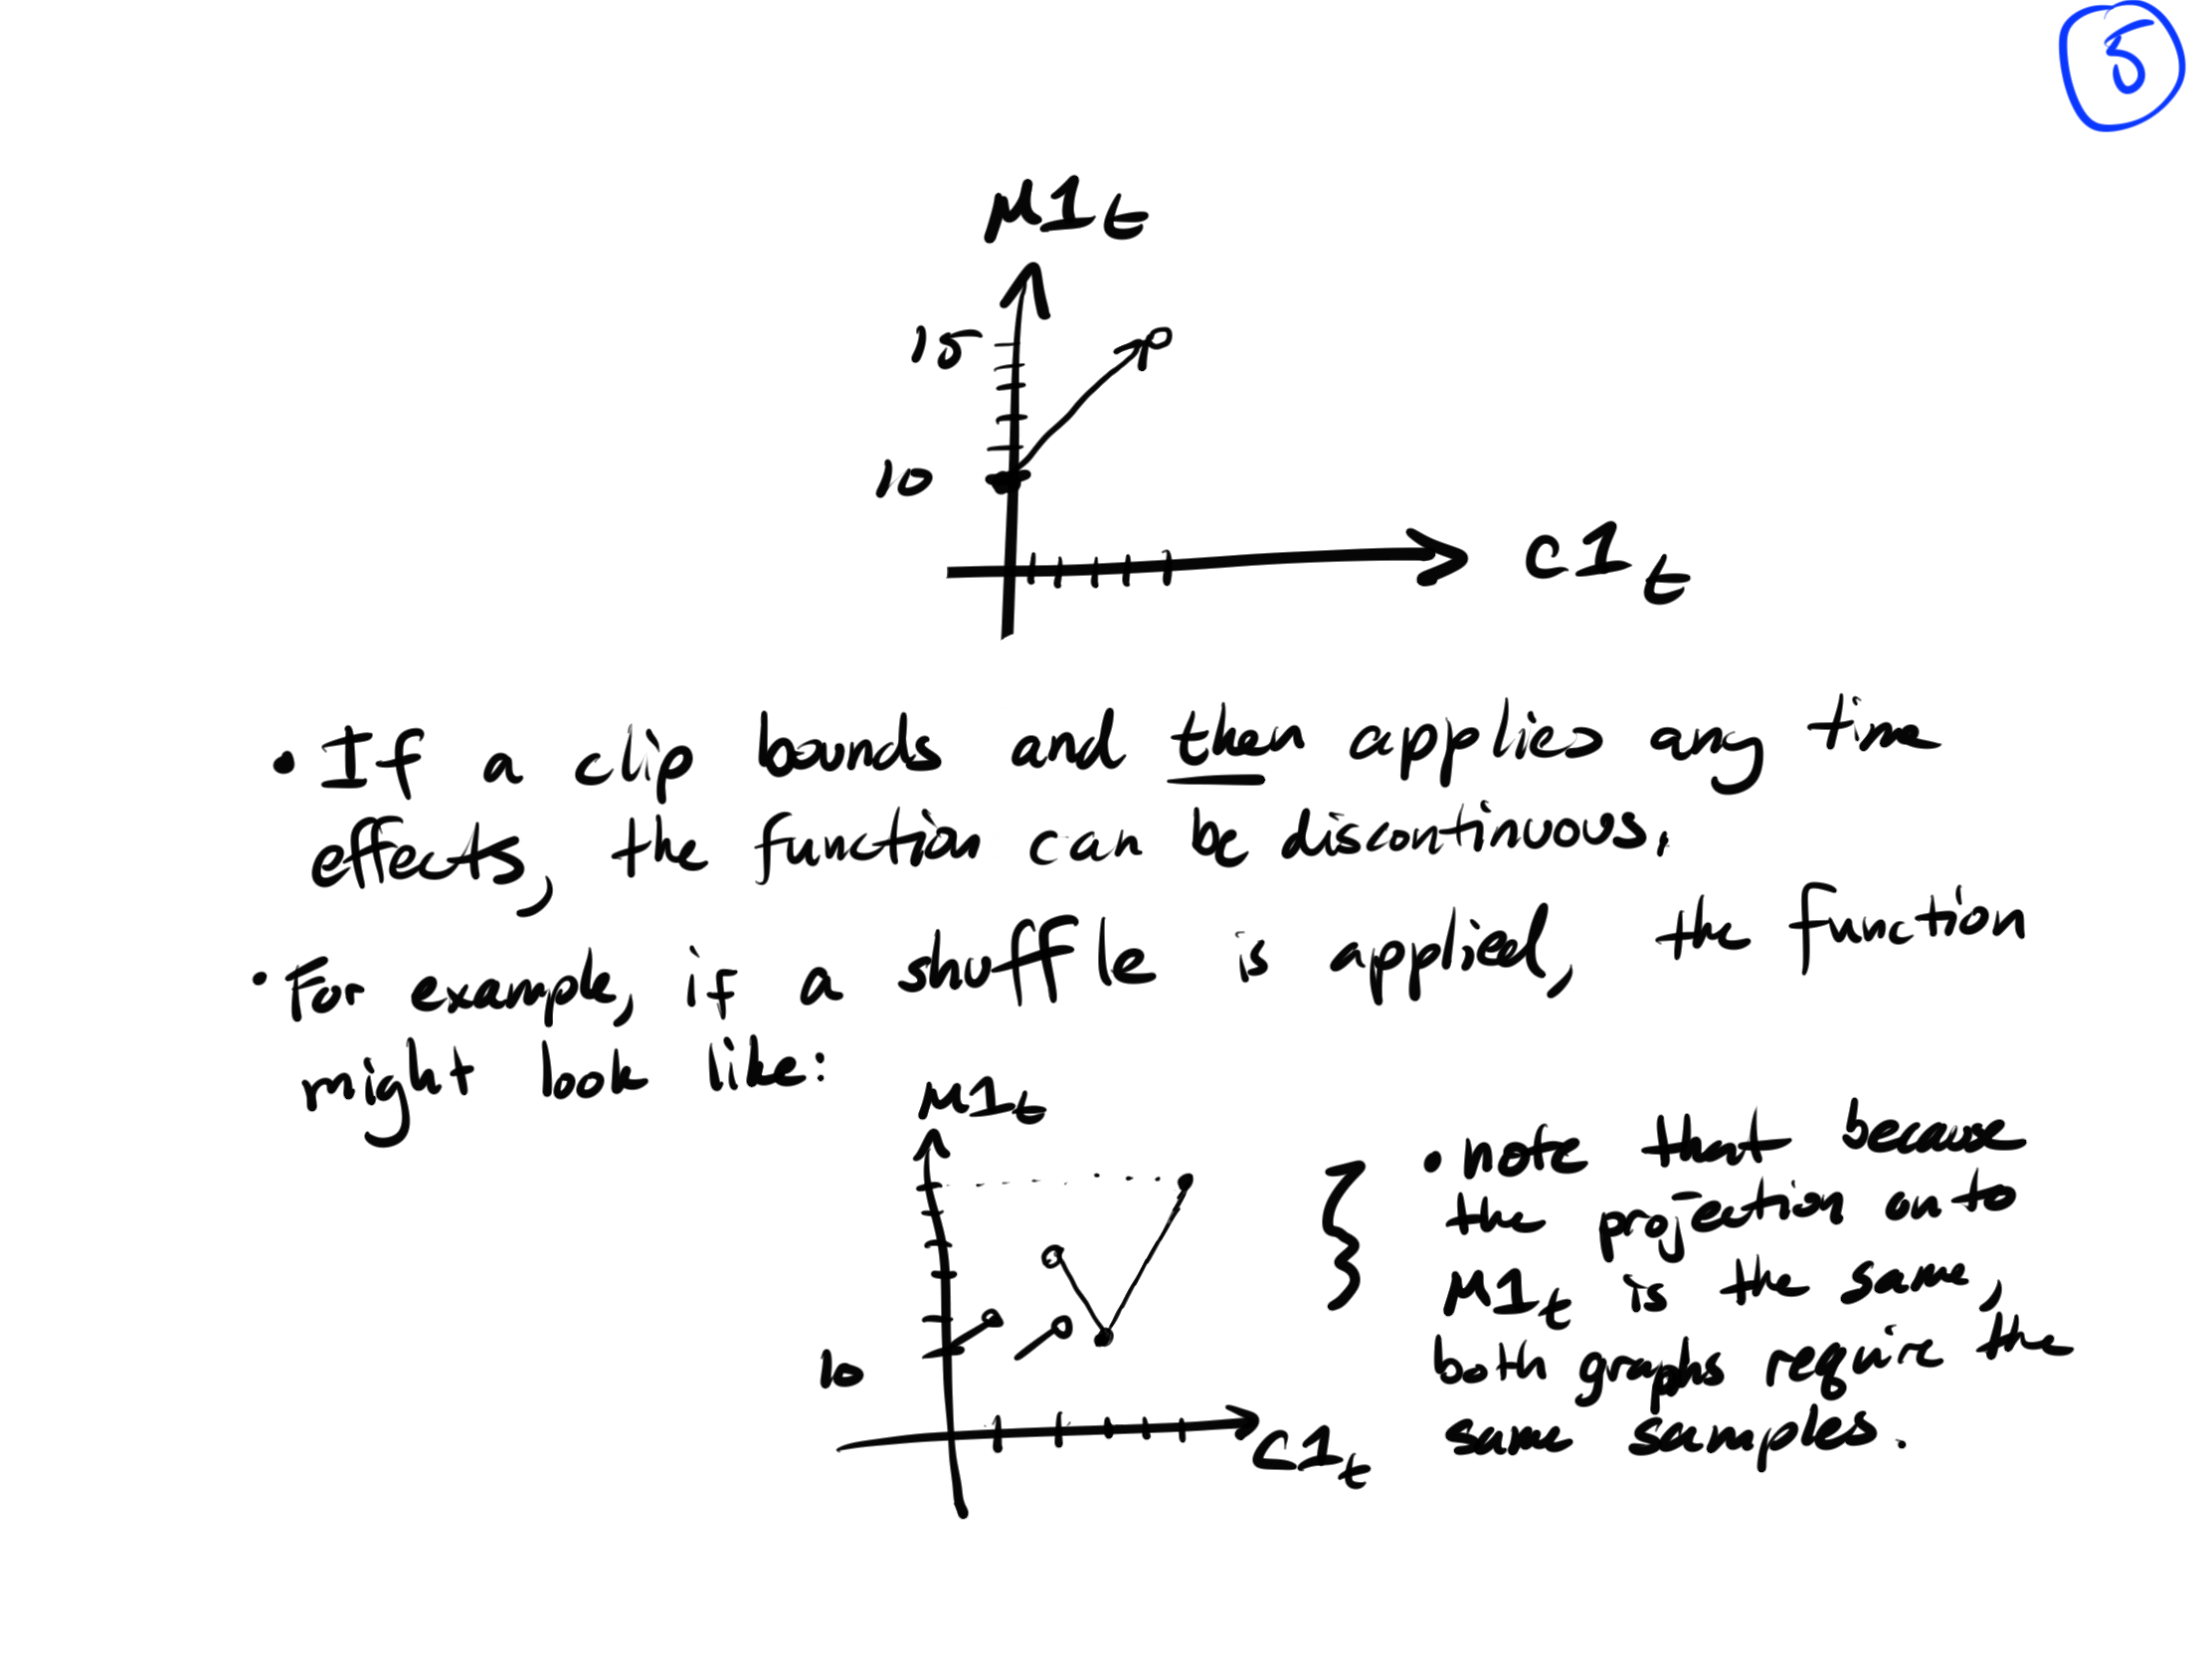 5
M1t
15
10
C1t
• If a clip bounds and then applies any time
effects, the function can be discontinuous.
• For example, if a shuffle is applied, the function
might look like:
M1t
10
C1t
• note that because
the projection onto
M1t is the same,
both graphs require the
same samples.